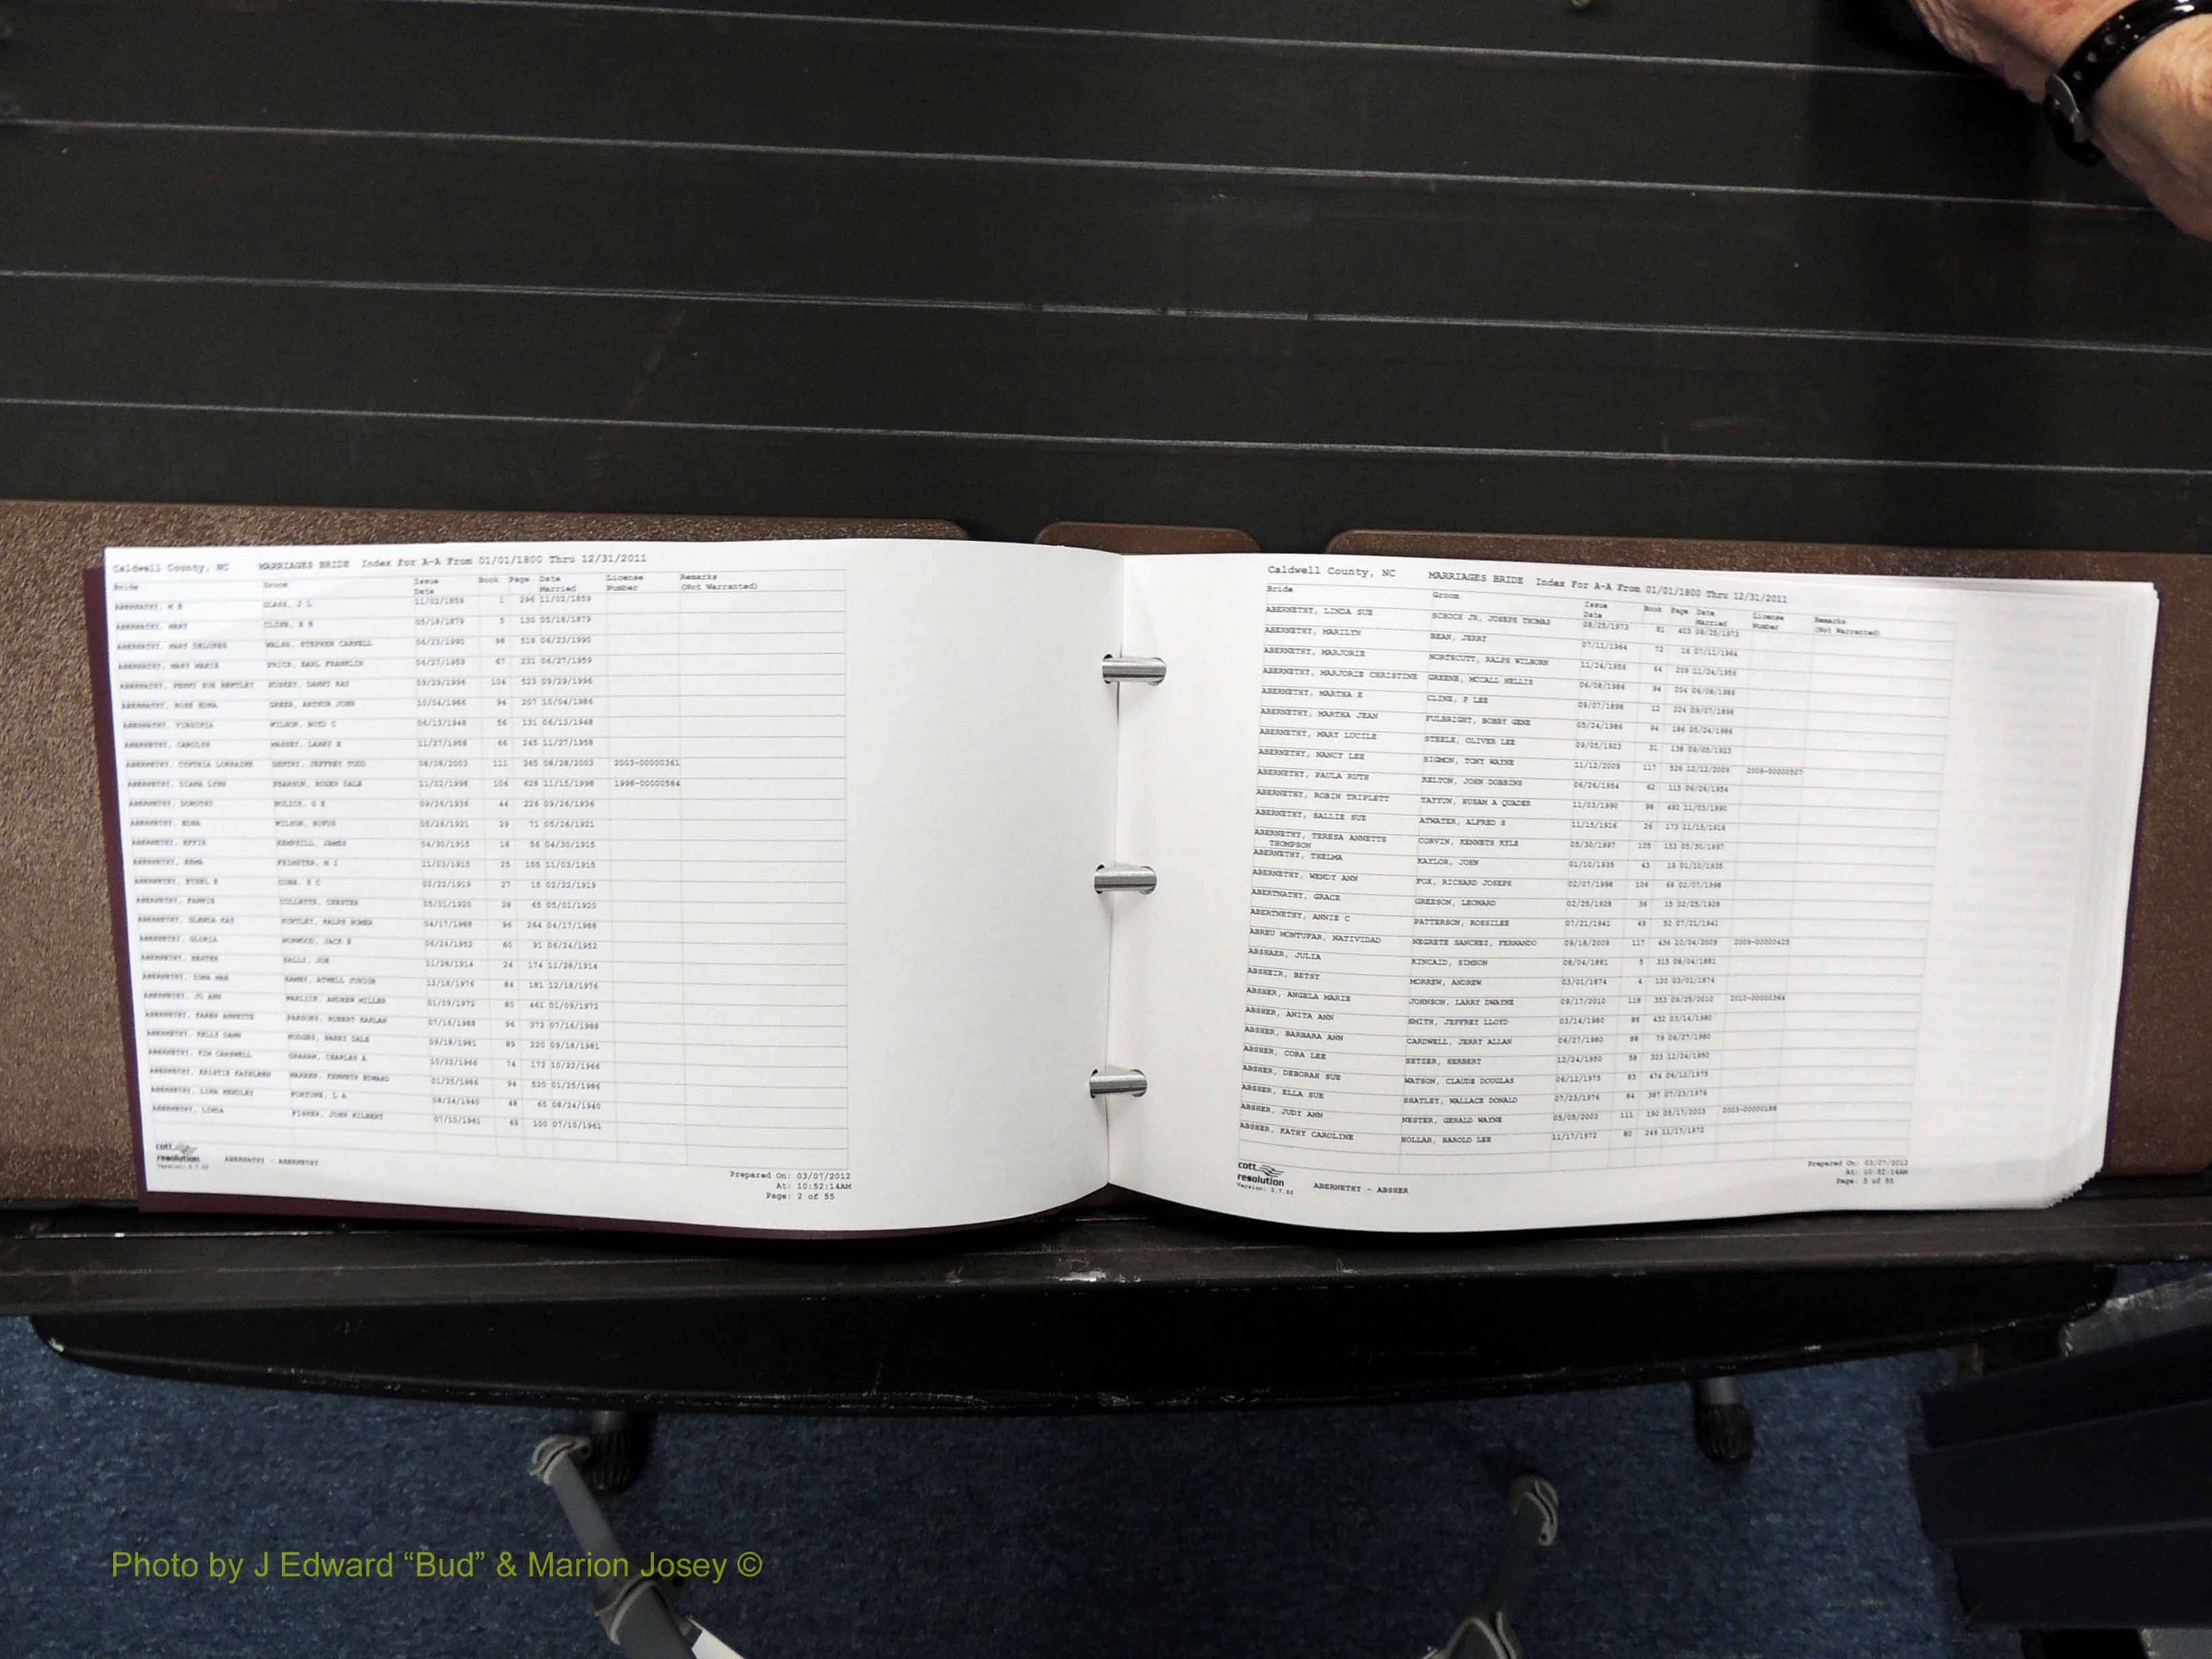 Caldwell County, NC MARRIAGES BRIDE Index For A-A From 01/01/1800 Thru 12/31/2011
Bride Groom Issue Date Book Page Date Married License Number Remarks (Not Warranted)
ABERNATHY, M E GLASS, J L 11/02/1859 1 296 11/02/1859
ABERNATHY, MARY CLINE, 05/18/1879 5 130 05/18/1879
ABERNATHY, MARY DELORES WALSH, STEPHEN CARWELL 06/23/1990 98 518 06/23/1990
ABERNATHY, MARY MARIE PRICE, EARL FRANKLIN 06/27/1959 67 231 06/27/1959
ABERNATHY, PENNY SUE BENTLEY HUSKEY, DANNY RAY 09/29/1996 104 523 09/29/1996
ABERNATHY, ROSE EDNA GREER, ARTHUR JOHN 10/04/1986 94 207 10/04/1986
ABERNATHY, VIRGINIA WILSON, BOYD C 06/13/1948 56 131 06/13/1948
ABERNETHY, CAROLYN MASSEY, LARRY E 11/27/1958 66 245 11/27/1958
ABERNETHY, CYNTHIA LORRAINE GENTRY, JEFFREY TODD 08/08/2003 111 365 08/28/2003 2003-00000361
ABERNETHY, DIANA LYNN PEARSON, ROGER DALE 11/02/1998 106 628 11/15/1998 1998-00000584
ABERNETHY, DOROTHY BOLICK, G E 09/26/1936 44 226 09/26/1936
ABERNETHY, EDNA WILSON, RUFUS 05/26/1921 29 71 05/26/1921
ABERNETHY, EFFIE HEMPHILL, JAMES 04/30/1915 18 56 04/30/1915
ABERNETHY, ERMA FEIMSTER, M I 11/03/1915 25 155 11/03/1915
ABERNETHY, ETHEL E COBB, S C 02/22/1919 27 15 02/22/1919
ABERNETHY, FANNIE COLLETTE, CHESTER 05/01/1920 28 65 05/01/1920
ABERNETHY, GLENDA KAY HUNTLEY, RALPH HOMER 04/17/1988 96 264 04/17/1988
ABERNETHY, GLORIA NORWOOD, JACK E 06/24/1952 60 91 06/24/1952
ABERNETHY, HESTER SALLY, JOE 11/28/1914 24 174 11/28/1914
ABERNETHY, IONA MAE HAMBY, ATWELL JUNIOR 12/18/1976 84 181 12/18/1976
ABERNETHY, JO ANN WARLICK, ANDREW MILLER 01/09/1972 80 461 01/09/1972
ABERNETHY, KAREN ANNETTE PARSONS, ROBERT HARLAN 07/16/1988 96 372 07/16/1988
ABERNETHY, KELLY DAWN HODGES, BARRY DALE 09/18/1981 89 220 09/18/1981
ABERNETHY, KIM CARSWELL GRAHAM, CHARLES A 10/22/1966 74 172 10/22/1966
ABERNETHY, KRISTIE KATHLEEN WARREN, KENNETH EDWARD 01/25/1986 94 520 01/25/1986
ABERNETHY, LINA HENDLEY FORTUNE, L A 08/24/1940 48 65 08/24/1940
ABERNETHY, LINDA FISHER, JOHN HILBERT 07/10/1961 69 100 07/10/1961
cott
resolution
ABERNATHY - ABERNETHY
Prepared On: 03/07/2012
At: 10:52:14AM
Page: 2 of 55
Caldwell County, NC MARRIAGES BRIDE Index For A-A From 01/01/1800 Thru 12/31/2011
Bride Groom Issue Date Book Page Date Married License Number Remarks (Not Warranted)
ABERNETHY, LINDA SUE SCHOCH JR, JOSEPH THOMAS 08/25/1973 81 403 08/25/1973
ABERNETHY, MARILYN BEAN, JERRY 07/11/1964 72 16 07/11/1964
ABERNETHY, MARJORIE NORTHCUTT, RALPH WILBORN 11/24/1956 64 209 11/24/1956
ABERNETHY, MARJORIE CHRISTINE GREENE, MCCALL NELLIS 06/08/1986 94 204 06/08/1986
ABERNETHY, MARTHA E CLINE, P LEE 09/07/1898 12 224 09/07/1898
ABERNETHY, MARTHA JEAN FULBRIGHT, BOBBY GENE 05/24/1986 94 186 05/24/1986
ABERNETHY, MARY LUCILE STEELE, OLIVER LEE 09/05/1923 31 138 09/05/1923
ABERNETHY, NANCY LEE SIGMON, TONY WAYNE 11/12/2009 117 526 12/12/2009 2009-00000507
ABERNETHY, PAULA RUTH KELTON, JOHN DOBBINS 06/26/1954 62 115 06/26/1954
ABERNETHY, ROBIN TRIPLETT TAYYUN, HUSAM A QUADER 11/03/1990 98 492 11/03/1990
ABERNETHY, SALLIE SUE ATWATER, ALFRED S 11/15/1916 26 173 11/15/1916
ABERNETHY, TERESA ANNETTE THOMPSON CORVIN, KENNETH KYLE 05/30/1997 105 153 05/30/1997
ABERNETHY, THELMA KAYLOR, JOHN 01/10/1935 43 19 01/10/1935
ABERNETHY, WENDY ANN FOX, RICHARD JOSEPH 02/07/1998 106 66 02/07/1998
ABERTNATHY, GRACE GREESON, LEONARD 02/25/1928 36 15 02/25/1928
ABERTNETHY, ANNIE C PATTERSON, ROSSILEE 07/21/1941 49 52 07/21/1941
ABREU MONTUFAR, NATIVIDAD NEGRETE SANCHEZ, FERNANDO 09/18/2009 117 436 10/04/2009 2009-00000425
ABSHAER, JULIA KINCAID, SIMSON 08/04/1881 5 315 08/04/1881
ABSHEIR, BETSY MORREW, ANDREW 03/01/1874 4 120 03/01/1874
ABSHER, ANGELA MARIE JOHNSON, LARRY DWAYNE 09/17/2010 118 353 09/25/2010 2010-00000364
ABSHER, ANITA ANN SMITH, JEFFREY LLOYD 03/14/1980 88 432 03/14/1980
ABSHER, BARBARA ANN CARDWELL, JERRY ALLAN 06/27/1980 88 79 06/27/1980
ABSHER, CORA LEE SETZER, HERBERT 12/24/1950 58 323 12/24/1950
ABSHER, DEBORAH SUE WATSON, CLAUDE DOUGLAS 06/12/1975 83 474 06/12/1975
ABSHER, ELLA SUE SHATLEY, WALLACE DONALD 07/23/1976 84 387 07/23/1976
ABSHER, JUDY ANN NESTER, GERALD WAYNE 05/05/2003 111 190 05/17/2003 2003-00000188
ABSHER, KATHY CAROLINE HOLLAR, HAROLD LEE 11/17/1972 80 246 11/17/1972
cott
resolution
ABERNETHY - ABSHER
Prepared On: 03/07/2012
At: 10:52:14AM
Page: 3 of 55
Photo by J Edward “Bud” & Marion Josey ©